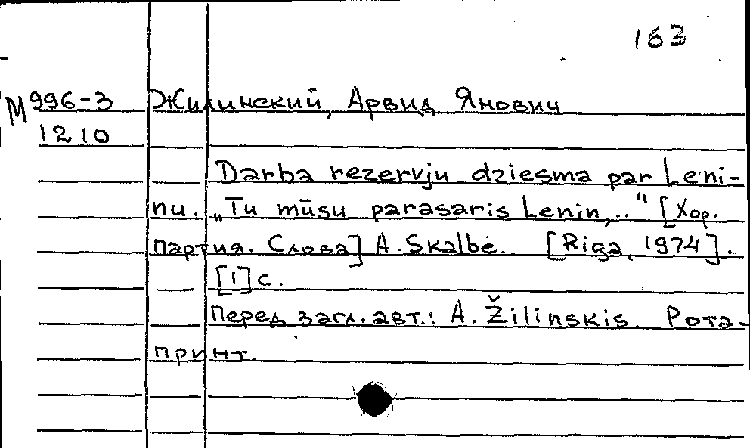 163
М 996-3 Жилинский, Арвид Янович
1210
Darba rezervju dziesma par Leni-
nu. „Tu mūsu parasaris Lenin,.." [Хор.
партия. Слова] A. Skalbe. [Riga, 1974].
[1] с.
Перед загл. авт.: A. Žilinskis. Рота-
принт.